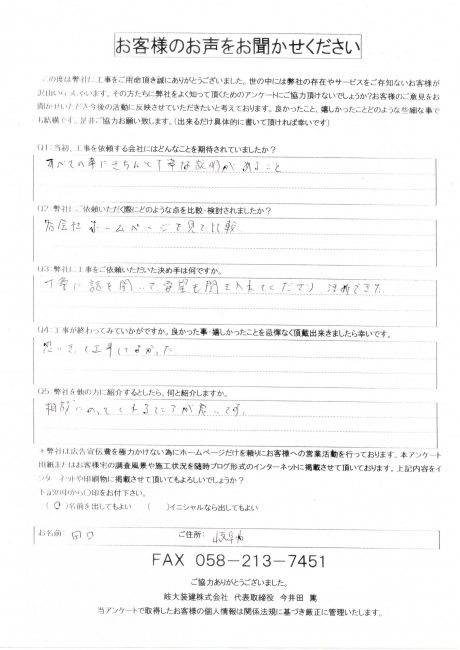 お客様のお声をお聞かせください
この度は弊社に工事をご用命頂き誠にありがとうございました。世の中には弊社の存在やサービスをご存知ないお客様が
沢山いらっしゃいます。その方たちに弊社をよく知って頂くためのアンケートにご協力頂けないでしょうか?お客様のご意見をお
聞かせいただき今後の活動に反映させていただきたいと考えております。良かったこと、嬉しかったことどのような些細な事で
も結構です。是非ご協力お願い致します。(出来るだけ具体的に書いて頂ければ幸いです)
Q1:当初、工事を依頼する会社にはどんなことを期待されていましたか?
すべての事にきちんと丁寧な説明があること
Q2:弊社にご依頼いただく際にどのような点を比較・検討されましたか?
各会社ホームページを見て比較
Q3:弊社に工事をご依頼いただいた決め手は何ですか。
丁寧に話を聞いて、要望も聞き入れてくださり 決断できた
Q4:工事が終わってみていかがですか。良かった事・嬉しかったことを忌憚なく頂戴出来きましたら幸いです。
思いきって工事してよかった
Q5:弊社を他の方に紹介するとしたら、何と紹介しますか。
相談にのってくれるところが良いです。
*弊社は広告宣伝費を極力かけない為にホームページだけを頼りにお客様への営業活動を行っております。本アンケート
用紙またはお客様宅の調査風景や施工状況を随時ブログ形式のインターネットに掲載させて頂いております。上記内容をイ
ンターネットや印刷物に掲載させて頂いてもよろしいでしょうか?
下記の中から〇印をお付下さい。
(○)名前を出してもよい ( )イニシャルなら出してもよい
お名前: 田口 ご住所: 岐阜市
FAX 058-213-7451
ご協力ありがとうございました。
岐大装建株式会社 代表取締役 今井田 篤
当アンケートで取得したお客様の個人情報は関係法規に基づき厳正に管理いたします。